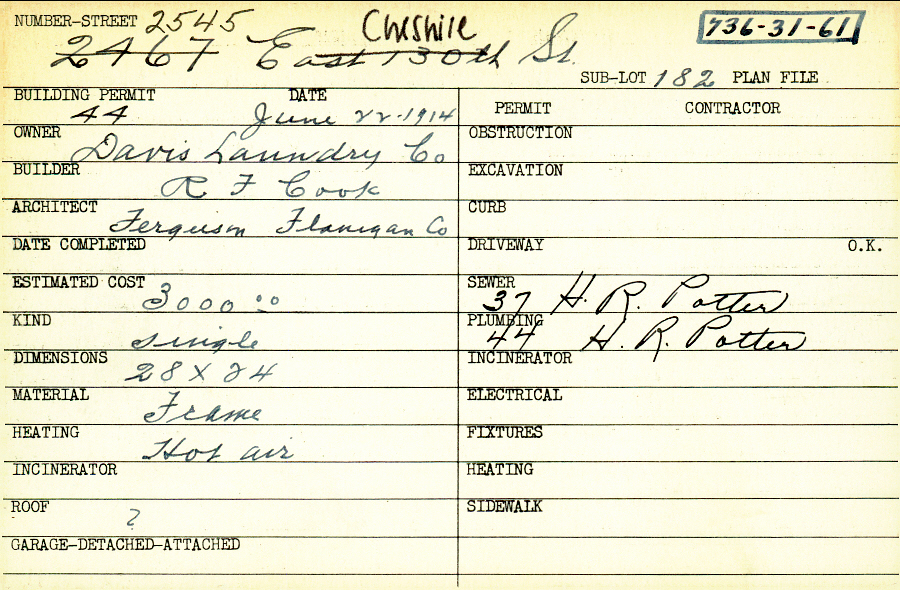 NUMBER-STREET 2545 Cheshire 736-31-61
2467 East 130th St.
SUB-LOT 182 PLAN FILE
BUILDING PERMIT DATE
44 June 22-1914
PERMIT CONTRACTOR
OWNER Davis Laundry Co
OBSTRUCTION
BUILDER R F Cook
EXCAVATION
ARCHITECT Ferguson Flanigan Co
CURB
DATE COMPLETED
DRIVEWAY O.K.
ESTIMATED COST 3000 00
SEWER 37 H. R. Potter
KIND single
PLUMBING 44 H. R. Potter
DIMENSIONS 28 X 24
INCINERATOR
MATERIAL Frame
ELECTRICAL
HEATING Hot air
FIXTURES
INCINERATOR
HEATING
ROOF ?
SIDEWALK
GARAGE-DETACHED-ATTACHED